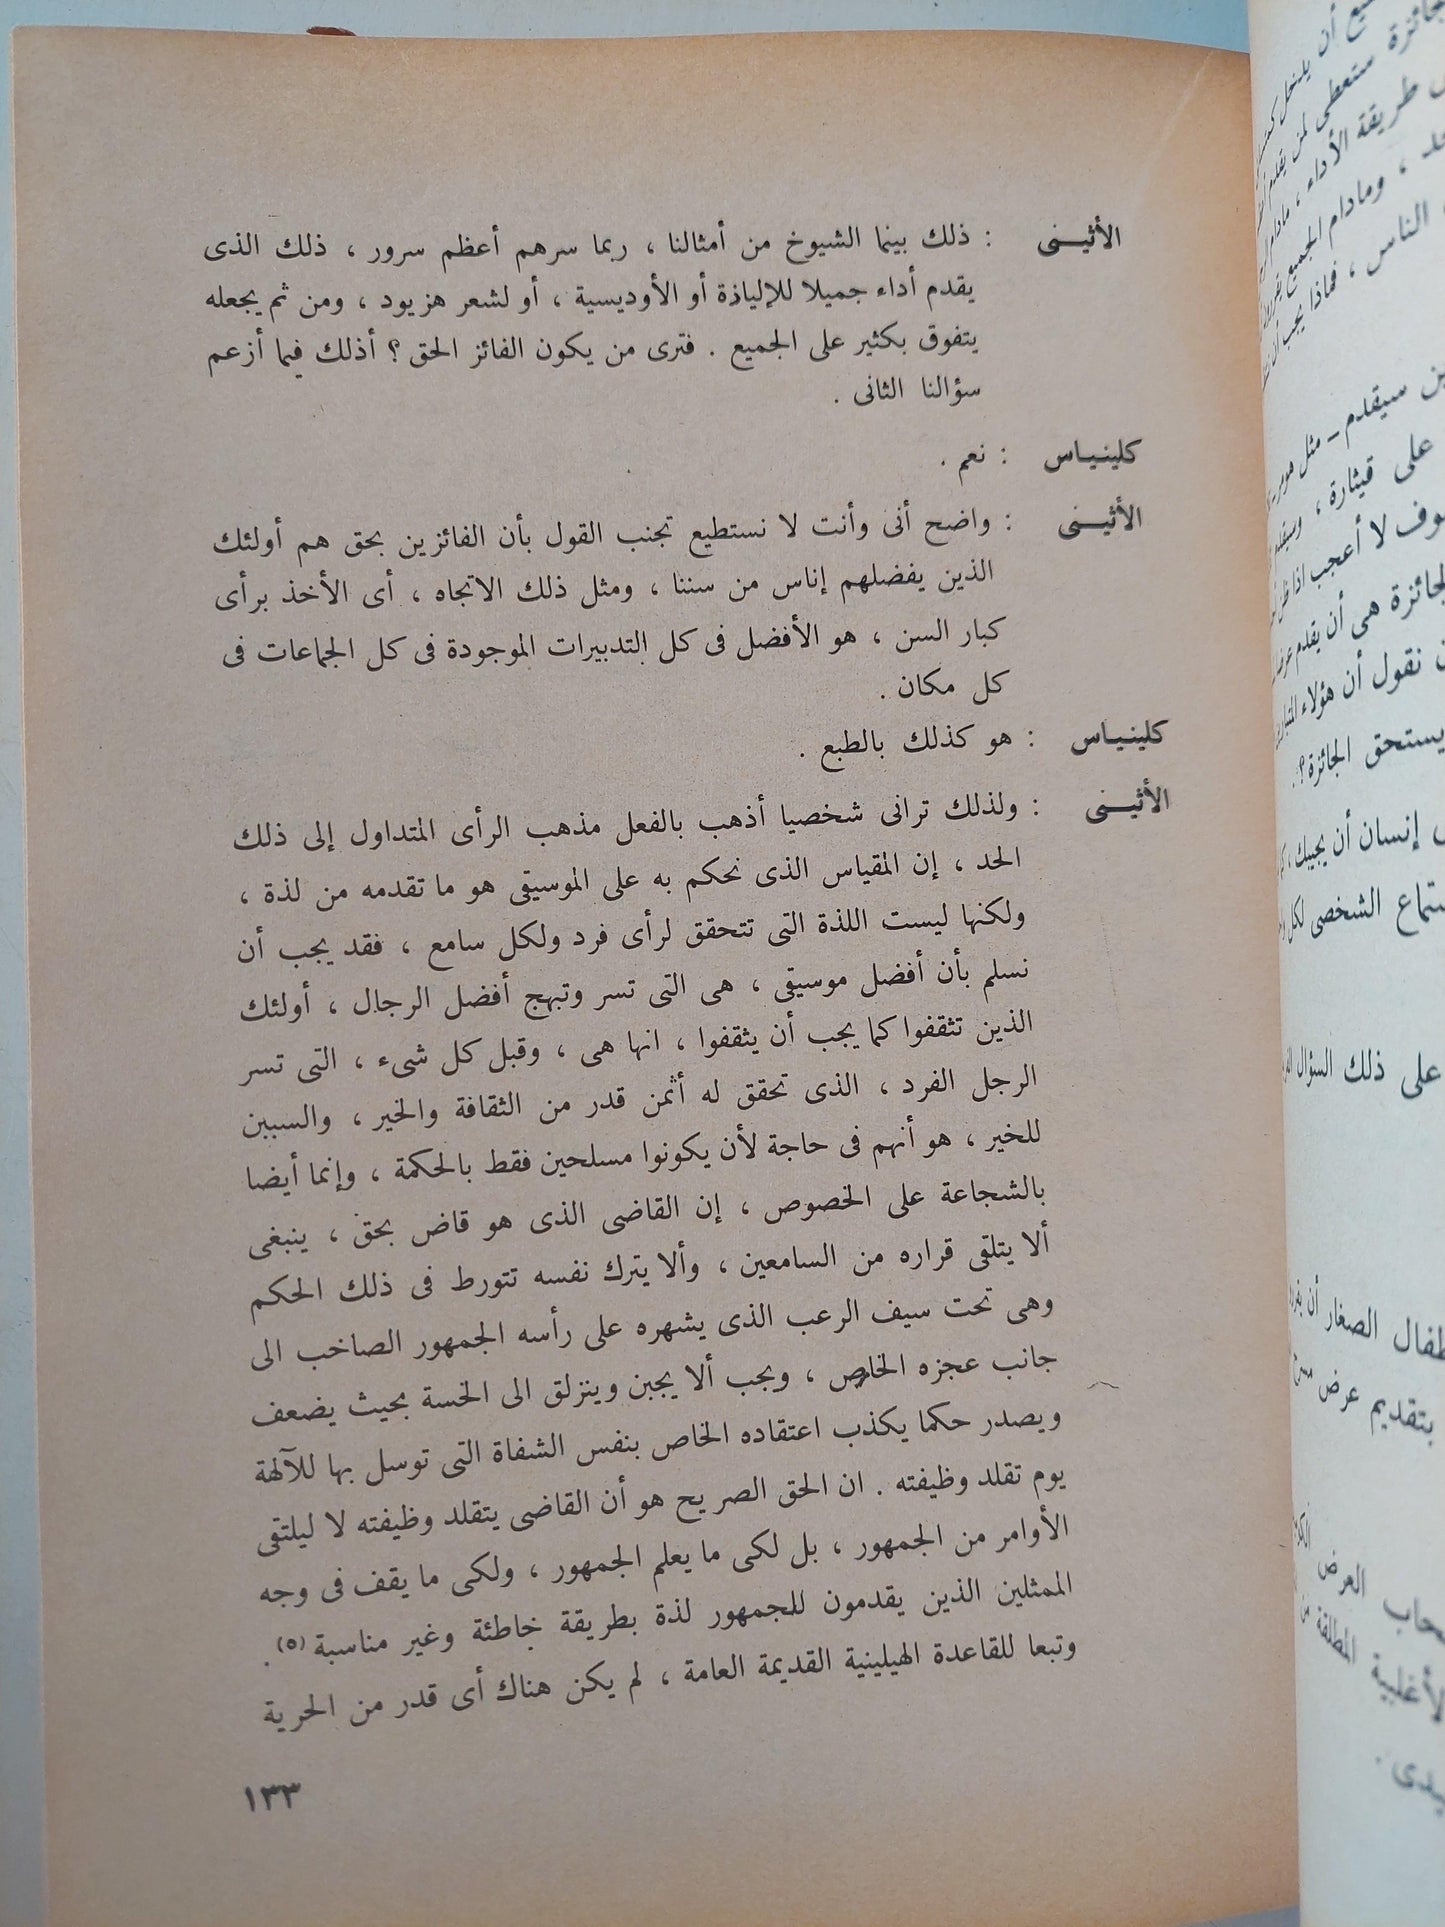 الأثينى : ذلك بينما الشيوخ من أمثالنا ، ربما سرهم أعظم سرور ، ذلك الذى
يقدم أداء جميلا للإلياذة أو الأوديسية ، أو لشعر هزيود ، ومن ثم يجعله
يتفوق بكثير على الجميع . فترى من يكون الفائز الحق ؟ أذلك فيما أزعم
سؤالنا الثانى .
كلينياس : نعم .
الأثينى : واضح أنى وأنت لا نستطيع تجنب القول بأن الفائزين بحق هم أولئك
الذين يفضلهم إناس من سننا ، ومثل ذلك الاتجاه ، أى الأخذ برأى
كبار السن ، هو الأفضل فى كل التدبيرات الموجودة فى كل الجماعات فى
كل مكان .
كلينياس : هو كذلك بالطبع .
الأثينى : ولذلك ترانى شخصيا أذهب بالفعل مذهب الرأى المتداول إلى ذلك
الحد ، إن المقياس الذى نحكم به على الموسيقى هو ما تقدمه من لذة ،
ولكنها ليست اللذة التى تتحقق لرأى فرد ولكل سامع ، فقد يجب أن
نسلم بأن أفضل موسيقى ، هى التى تسر وتبهج أفضل الرجال ، أولئك
الذين تثقفوا كما يجب أن يثقفوا ، انها هى ، وقبل كل شىء ، التى تسر
الرجل الفرد ، الذى تحقق له أثمن قدر من الثقافة والخير ، والسببن
للخير ، هو أنهم فى حاجة لأن يكونوا مسلحين فقط بالحكمة ، وإنما أيضا
بالشجاعة على الخصوص ، إن القاضى الذى هو قاض بحق ، ينبغى
ألا يتلقى قراره من السامعين ، وألا يترك نفسه تتورط فى ذلك الحكم
وهى تحت سيف الرعب الذى يشهره على رأسه الجمهور الصاخب الى
جانب عجزه الخاص ، ويجب ألا يجبن وينزلق الى الخسة بحيث يضعف
ويصدر حكما يكذب اعتقاده الخاص بنفس الشفاة التى توسل بها للآلهة
يوم تقلد وظيفته . ان الحق الصريح هو أن القاضى يتقلد وظيفته لا ليلتقى
الأوامر من الجمهور ، بل لكى ما يعلم الجمهور ، ولكى ما يقف فى وجه
الممثلين الذين يقدمون للجمهور لذة بطريقة خاطئة وغير مناسبة (٥) .
وتبعا للقاعدة الهيلينية القديمة العامة ، لم يكن هناك أى قدر من الحرية
١٣٣
طريقة الأداء ،
، ومادام الجميع
الناس ، فماذا يجب أن
سيقدم – مثل
على قيثارة ،
لا أعجب اذا
هى أن يقدم
نقول أن هؤلاء
يستحق الجائزة ؟
إنسان أن يجيبك
الشخصى لكل
على ذلك السؤال
الصغار أن
بتقديم عرض
العرض
المطلقة